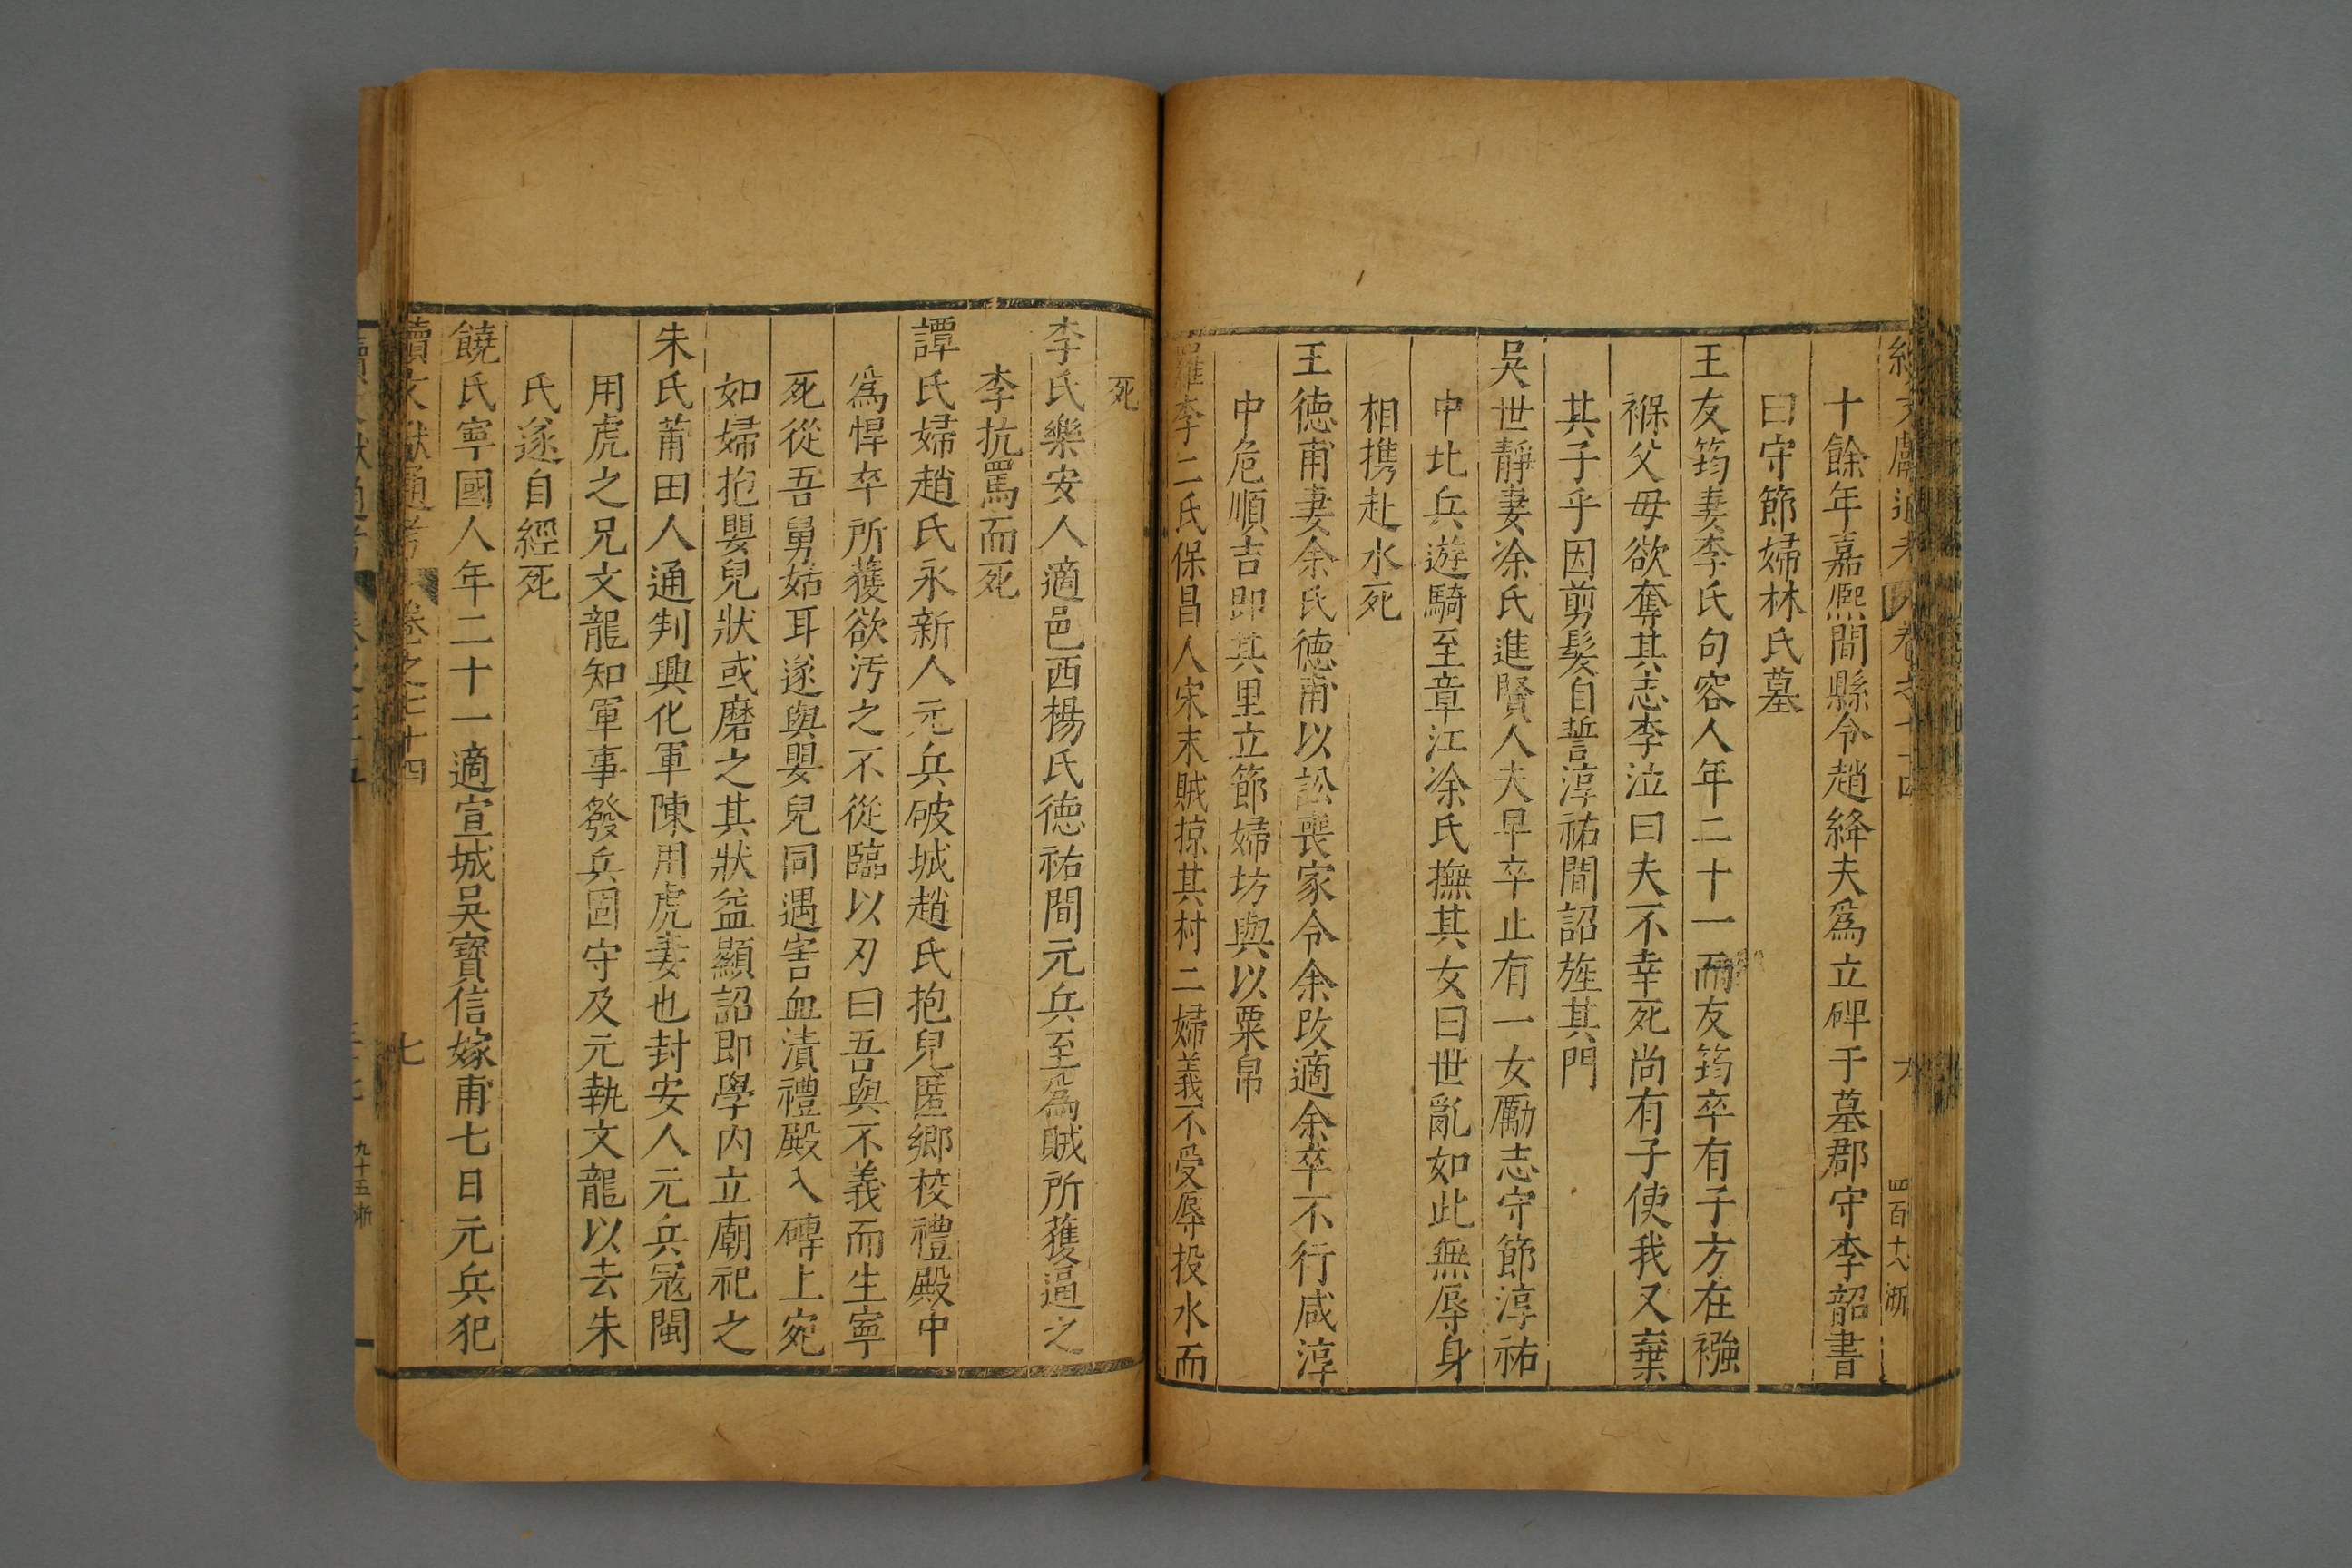 續文獻通考 卷之七十四 六 四百十八 浙
十餘年嘉熈間縣令趙絳夫爲立碑于墓郡守李韶書
曰守節婦林氏墓
王友筠妻李氏句容人年二十一而友筠卒有子方在襁
褓父母欲奪其志李泣曰夫不幸死尚有子使我又棄
其子乎因剪髪自誓淳祐間詔旌其門
吳世靜妻凃氏進賢人夫早卒止有一女勵志守節淳祐
中北兵遊騎至章江凃氏撫其女曰世亂如此無辱身
相携赴水死
王德甫妻余氏德甫以訟喪家令余改適余卒不行咸淳
中危順吉即其里立節婦坊與以粟帛
羅李二氏保昌人宋末賊掠其村二婦義不受辱投水而
死
李氏樂安人適邑西楊氏德祐間元兵至爲賊所獲逼之
李抗罵而死
譚氏婦趙氏永新人元兵破城趙氏抱兒匿鄉校禮殿中
爲悍卒所獲欲汚之不從臨以刃曰吾與不義而生寧
死從吾舅姑耳遂與嬰兒同遇害血漬禮殿入磚上宛
如婦抱嬰兒狀或磨之其狀益顯詔即學內立廟祀之
朱氏莆田人通判興化軍陳用虎妻也封安人元兵冦閩
用虎之兄文龍知軍事發兵固守及元執文龍以去朱
氏遂自經死
饒氏寧國人年二十一適宣城吳寶信嫁甫七日元兵犯
續文獻通考 卷之七十四 七
九十五浙